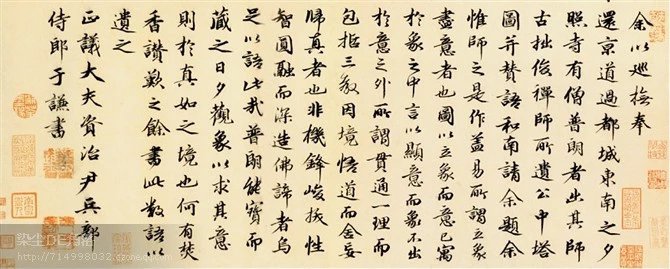 余以巡撫奉
還京道過都城東南之夕
照寺有僧普朗者出其師
古拙俊禪師所遺公中塔
圖并贊語和南請余題余
惟師之是作蓋易所謂立象
盡意者也圖以立象而意已寓
於象之中言以顯意而象不出
於意之外所謂貫通一理而
包括三教因境悟道而舍妄
歸真者也非機鋒峻拔性
智圓融而深造佛諦者烏
足以語此哉普朗能寶而
藏之日夕觀象以求其意
則於真如之境也何有焚
香讚歎之餘書此數語以
遺之
正議大夫資治尹兵部
侍郎于謙書
染尘DE行囊
714998032.qzone.qq.com